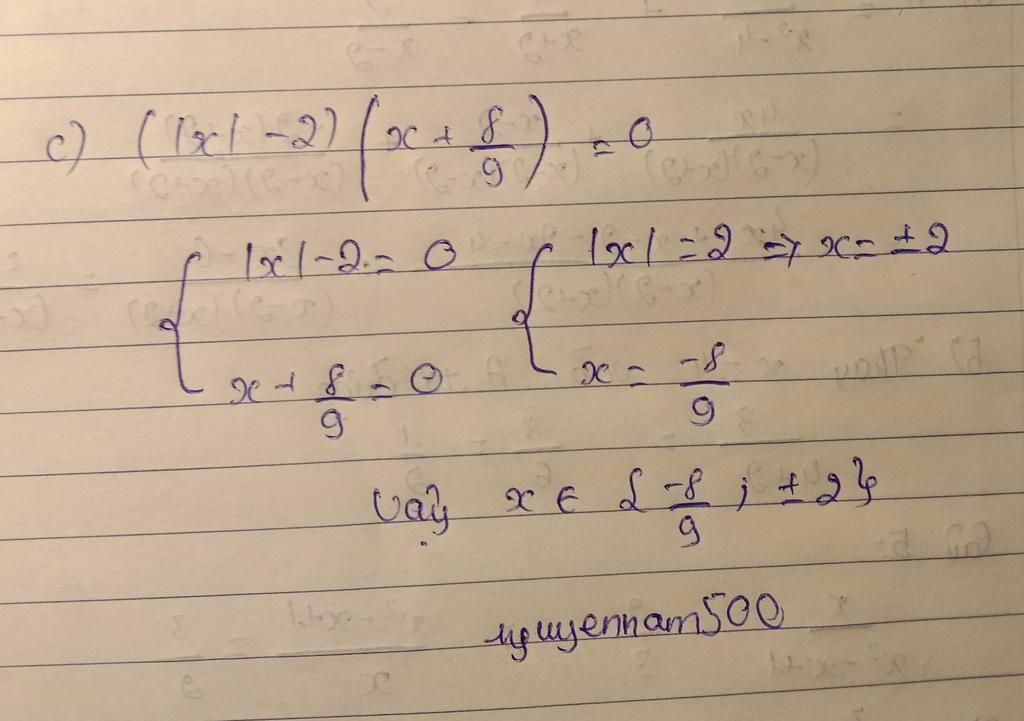 c) (|x| - 2) (x + 8/9) = 0
{ |x| - 2 = 0 { |x| = 2 => x = ±2
x + 8/9 = 0 x = -8/9
Vậy x ∈ { -8/9 ; ±2}
nguyennam500